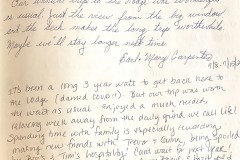 Our annual trip to the lodge was wonderful
as usual. Just the view from the big window
and the deck makes the long trip worthwhile.
Maybe we'll stay longer next time.
Earl & Mary Carpenter
9/18-9/20/
Its been a long 3 year wait to get back here to
the lodge (damed covid!). But our trip was worth
the wait as usual enjoyed a much needed
relaxing week away from the daily grind we call life!
Spending time with family is especially rewarding
making new friends with Trevor & Quinn. Spoiled
Tim's hospitality! Can't wait to next year!